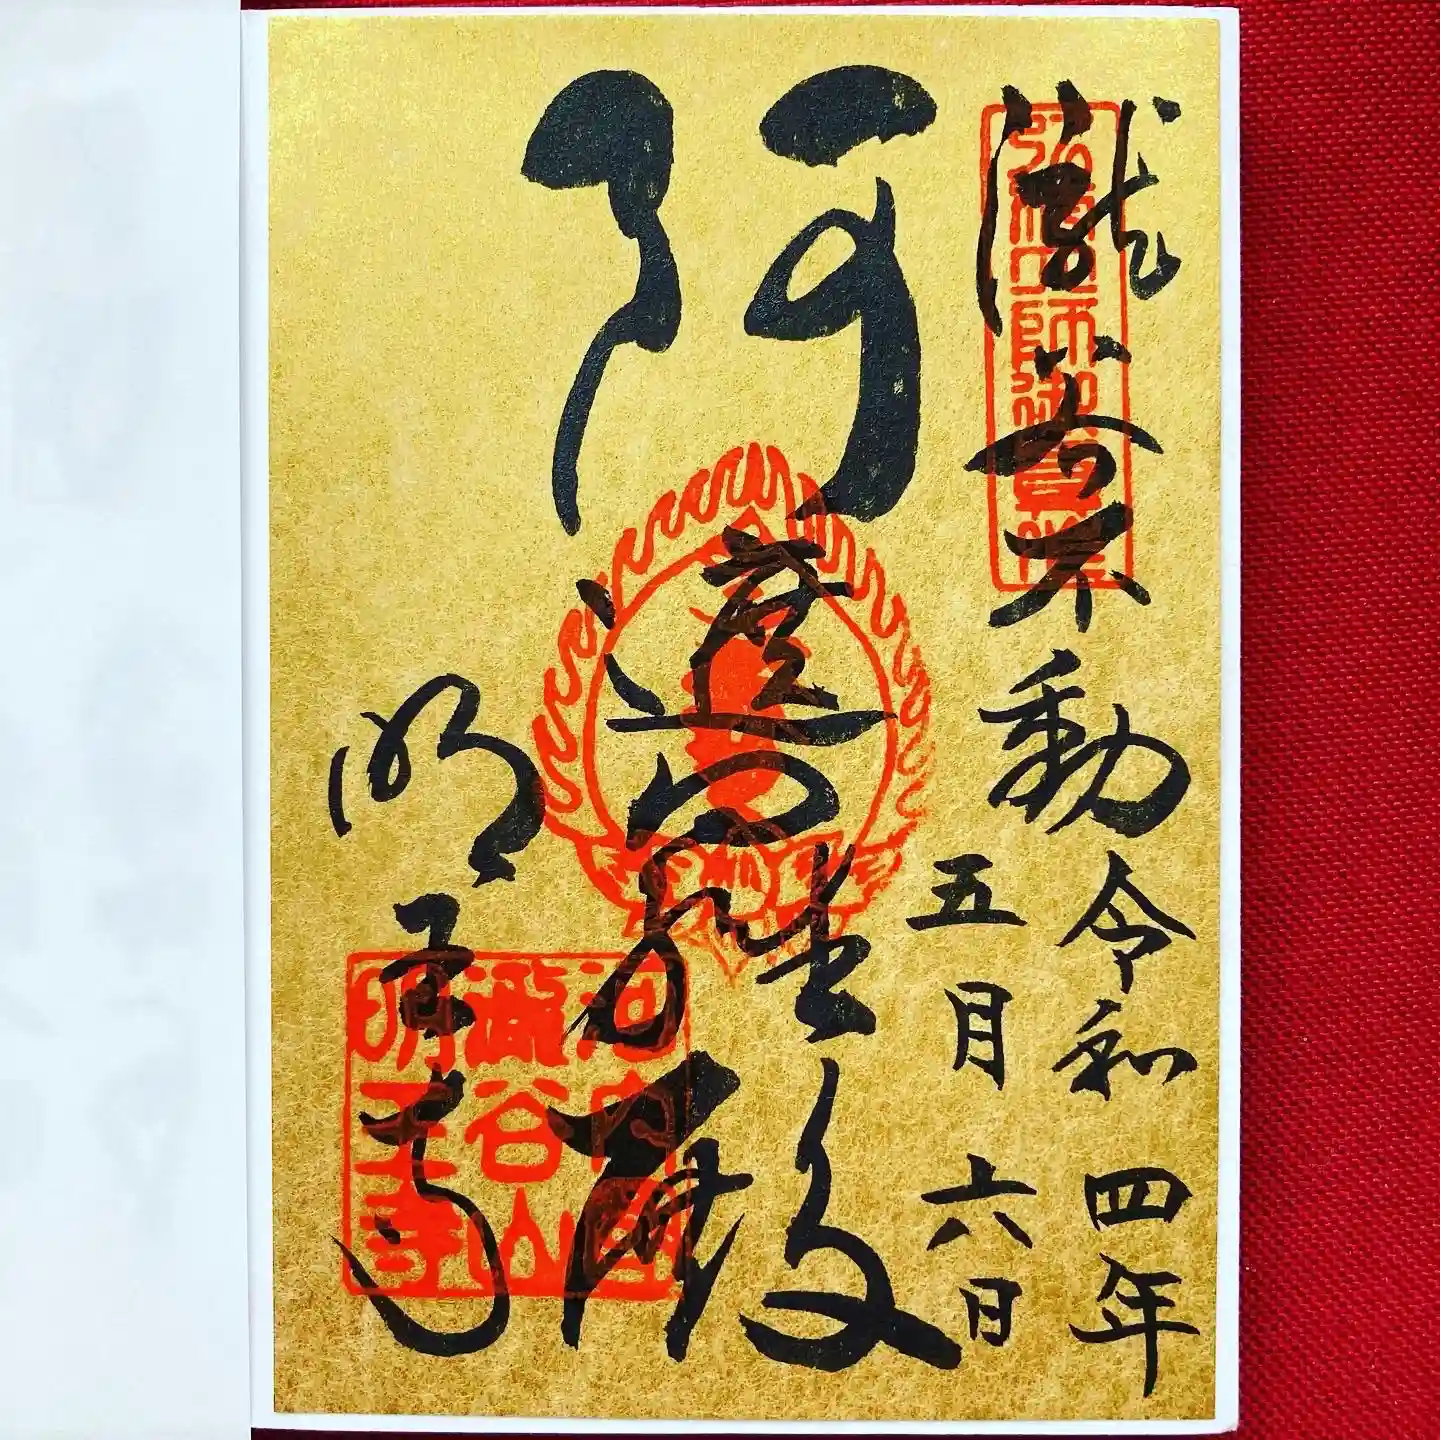 弘法大師御草創
瀧谷不動
令和四年
五月六日
阿遮羅殿
明王寺
河内國
瀧谷山
明王寺